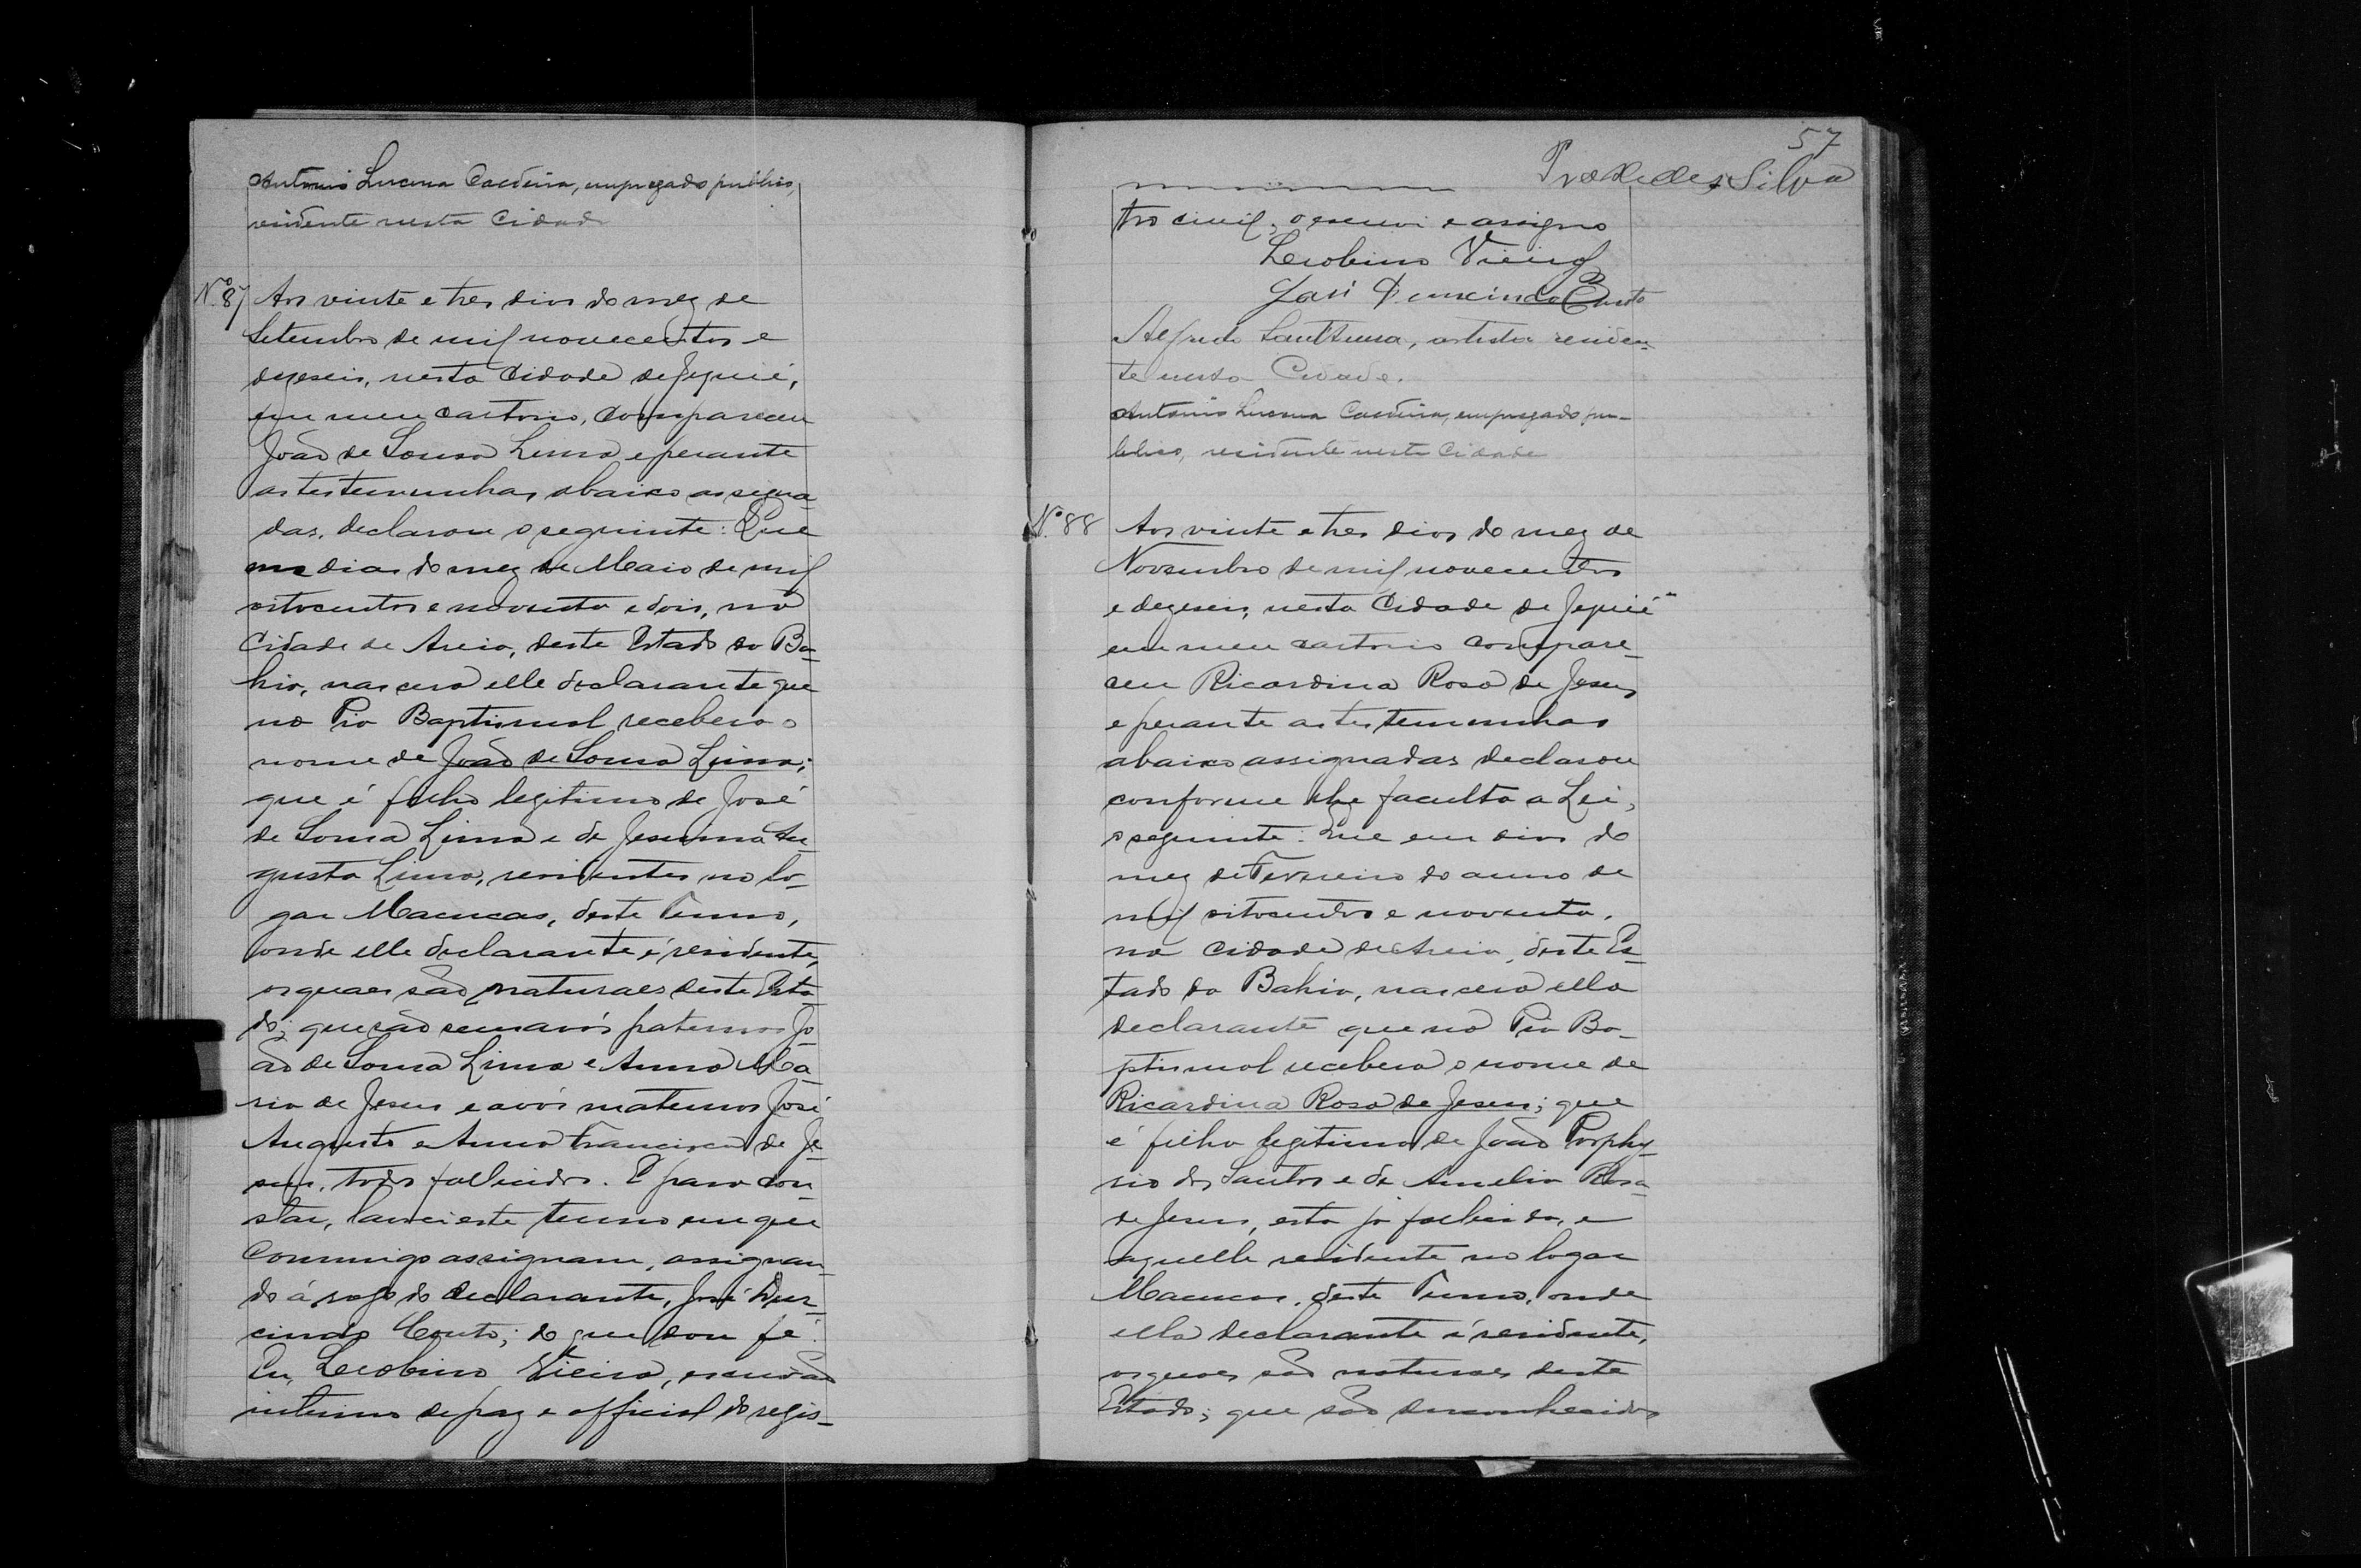 Antonio Lucena Caldeira, empregado publico,
residente nesta Cidade
Nº 87 Aos vinte e tres dias do mez de
Setembro de mil novecentos e
dezeseis, nesta Cidade de Jequié,
em meu cartorio, compareceu
João de Sousa Lima e perante
as testemunhas abaixo assigna-
das, declarou o seguinte: Que
nos dias do mez de Maio de mil
oitocentos e noventa e dois, na
Cidade de Areia, deste Estado da Ba-
hia, nascera elle declarante que
na Pia Baptismal recebera o
nome de João de Sousa Lima;
que é filho legitimo de José
de Sousa Lima e de Jesuina Au-
gusta Lima, residentes no lo-
gar Macucas, deste Termo,
onde elle declarante é residente,
os quaes são naturaes deste Esta-
do; que são seus avós paternos Jo-
ão de Sousa Lima e Anna Ma-
ria de Jesus e avós maternos José
Augusto e Anna Francisca de Je-
sus, todos fallecidos. E para con-
star, lancei este termo em que
commigo assignam, assignan-
do á rogo do declarante, José Dur-
cindo Couto; do que dou fé.
Eu, Leobino Vieira, escrivão
interino de paz e official do regis-
57
Silva
tro civil, o escrevi e assigno
Leobino Vieira
José Durcindo Couto
Alfredo Sant'Anna, artista residen-
te nesta Cidade.
Antonio Lucena Caldeira, empregado pu-
blico, residente nesta Cidade
Nº 88 Aos vinte e tres dias do mez de
Novembro de mil novecentos
e dezeseis, nesta Cidade de Jequié
em meu cartorio compare-
ceu Ricardina Rosa de Jesus
e perante as testemunhas
abaixo assignadas declarou
conforme lhe faculta a Lei,
o seguinte: Que em dias do
mez de Fevereiro do anno de
mil oitocentos e noventa,
na cidade de Areia, deste Es-
tado da Bahia, nascera ella
declarante que na Pia Ba-
ptismal recebera o nome de
Ricardina Rosa de Jesus; que
é filha legitima de João Porphy-
rio dos Santos e de Amelia Rosa
de Jesus, esta já fallecida, e
aquelle residente no logar
Macucas, deste Termo, onde
ella declarante é residente,
os quaes são naturaes deste
Estado; que são desconhecidos